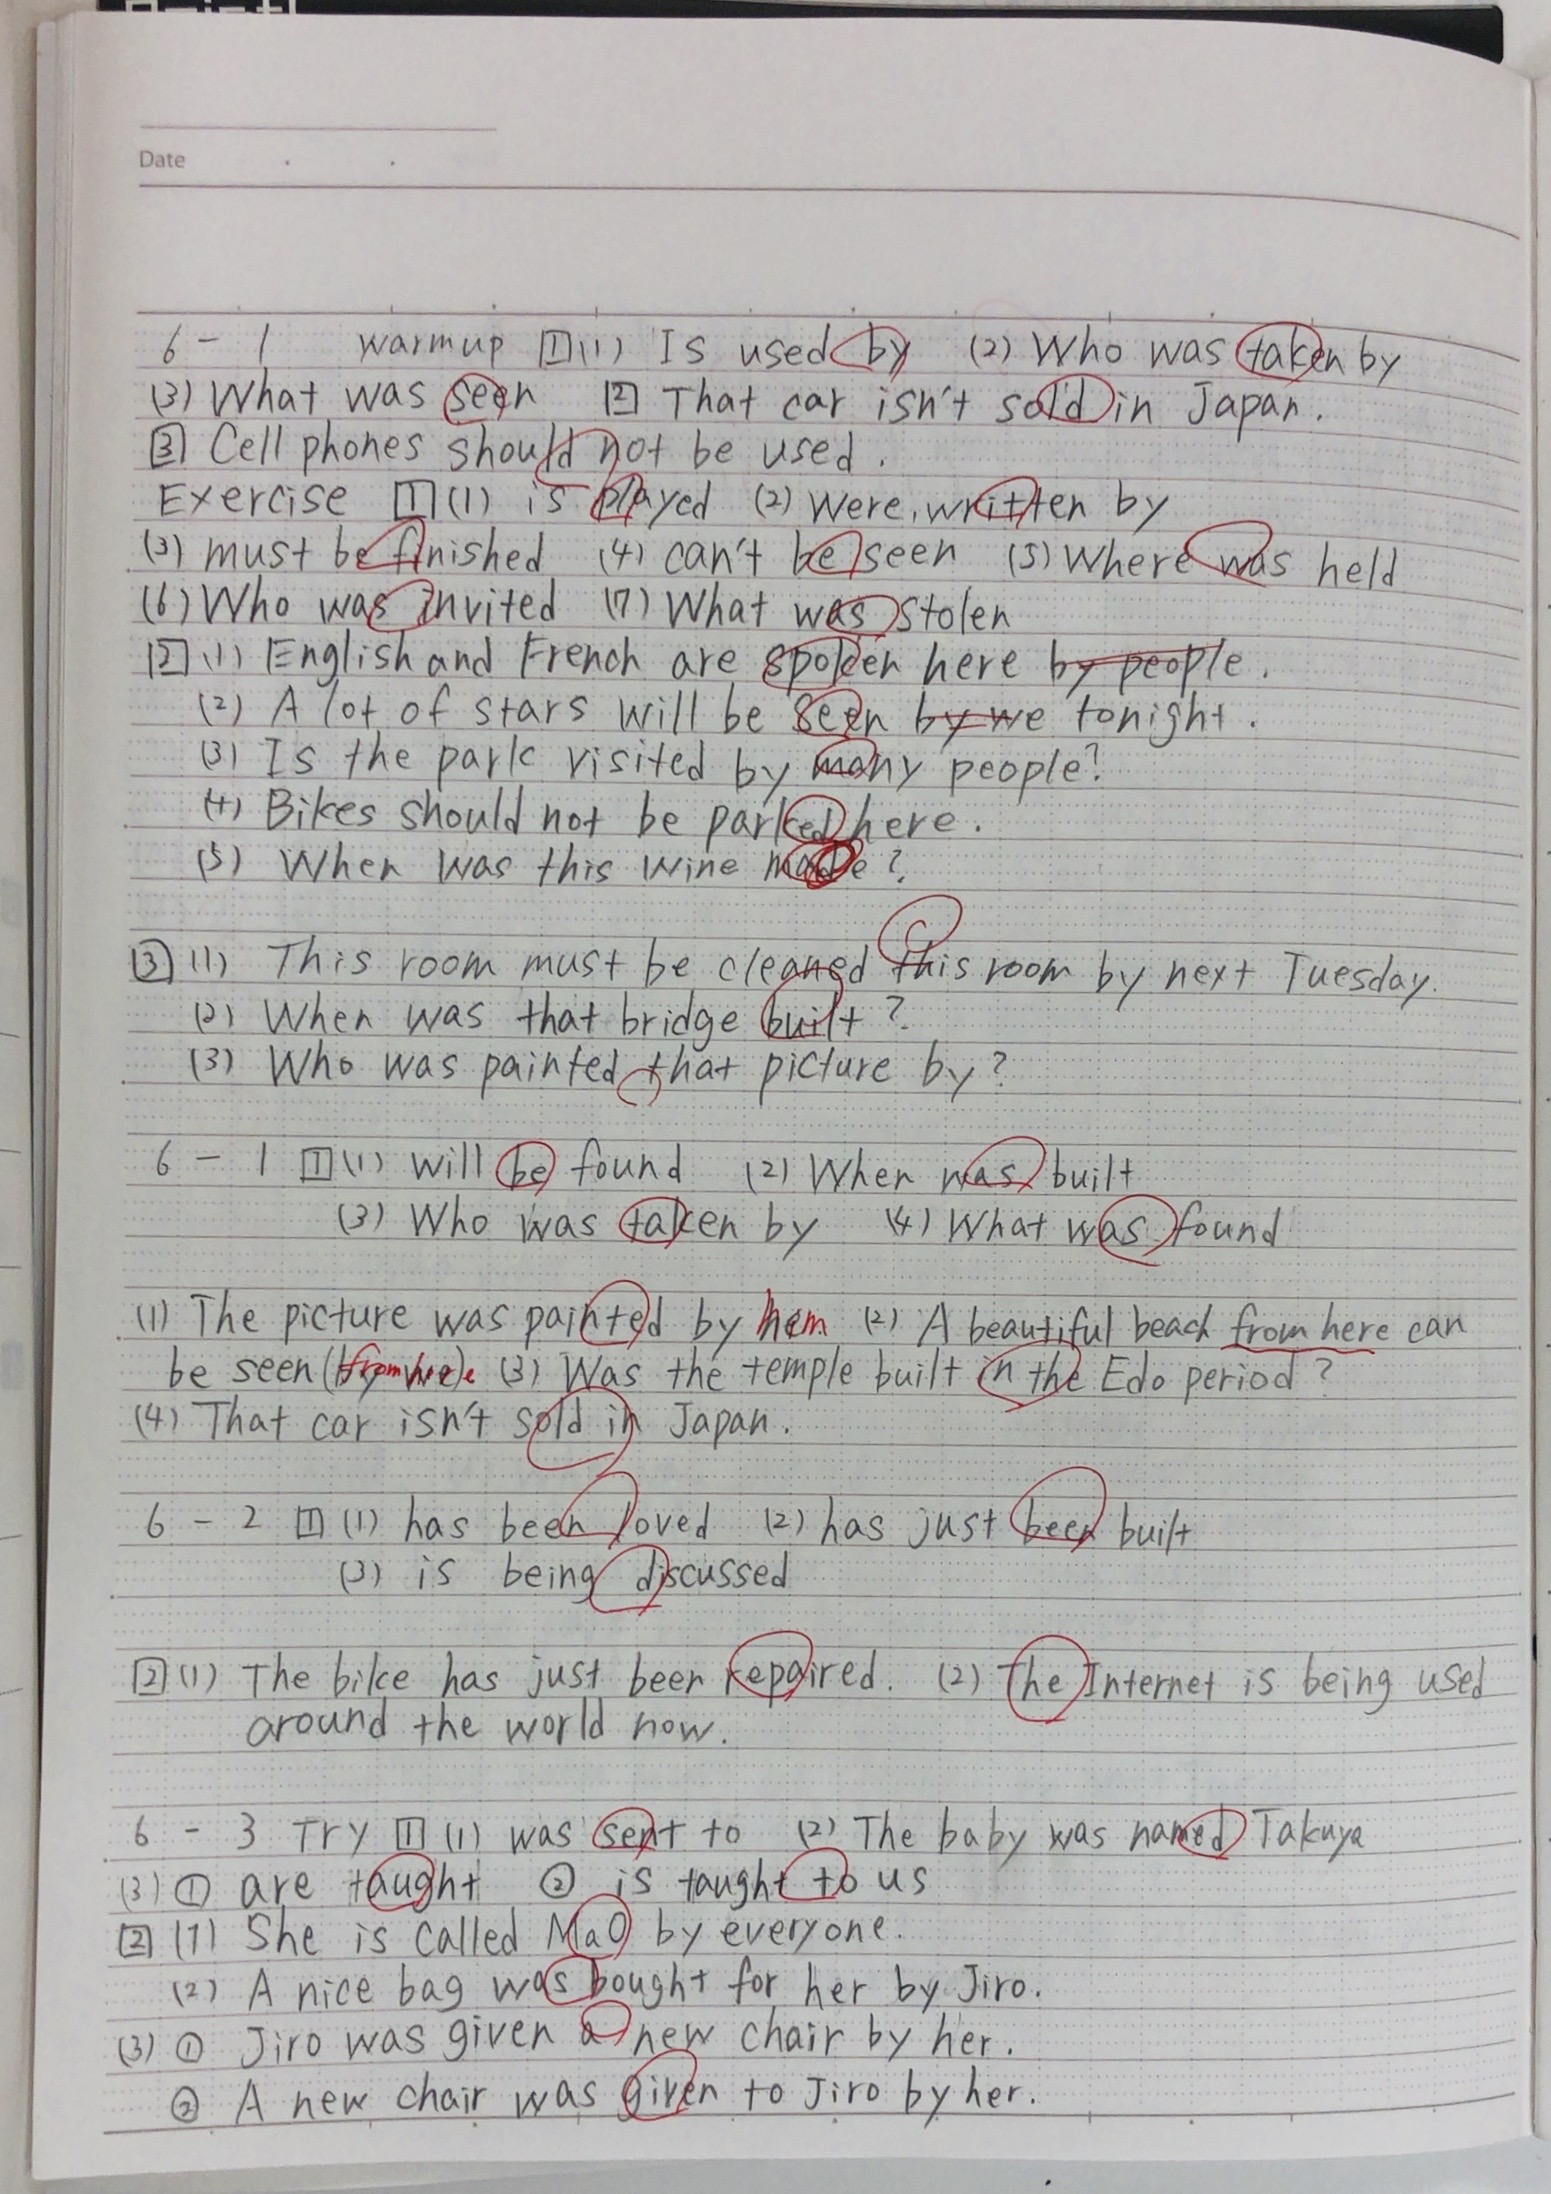 Date
6-1 warmup 1 (1) Is used by (2) Who was taken by
(3) What was seen 2 That car isn't sold in Japan.
3 Cell phones should not be used.
Exercise 1 (1) is played (2) Were, written by
(3) must be finished (4) can't be seen (5) Where was held
(6) Who was invited (7) What was stolen
2 (1) English and French are spoken here by people.
(2) A lot of stars will be seen by we tonight.
(3) Is the park visited by many people?
(4) Bikes should not be parked here.
(5) When was this wine made?
3 (1) This room must be cleaned this room by next Tuesday.
(2) When was that bridge built?
(3) Who was painted that picture by?
6-1 1 (1) will be found (2) When was built
(3) Who was taken by (4) What was found
(1) The picture was painted by him (2) A beautiful beach from here can
be seen (from here). (3) Was the temple built in the Edo period?
(4) That car isn't sold in Japan.
6-2 1 (1) has been loved (2) has just been built
(3) is being discussed
2 (1) The bike has just been repaired. (2) The Internet is being used
around the world now.
6-3 Try 1 (1) was sent to (2) The baby was named Takuya
(3) ① are taught ② is taught to us
2 (1) She is called MaO by everyone.
(2) A nice bag was bought for her by Jiro.
(3) ① Jiro was given a new chair by her.
② A new chair was given to Jiro by her.